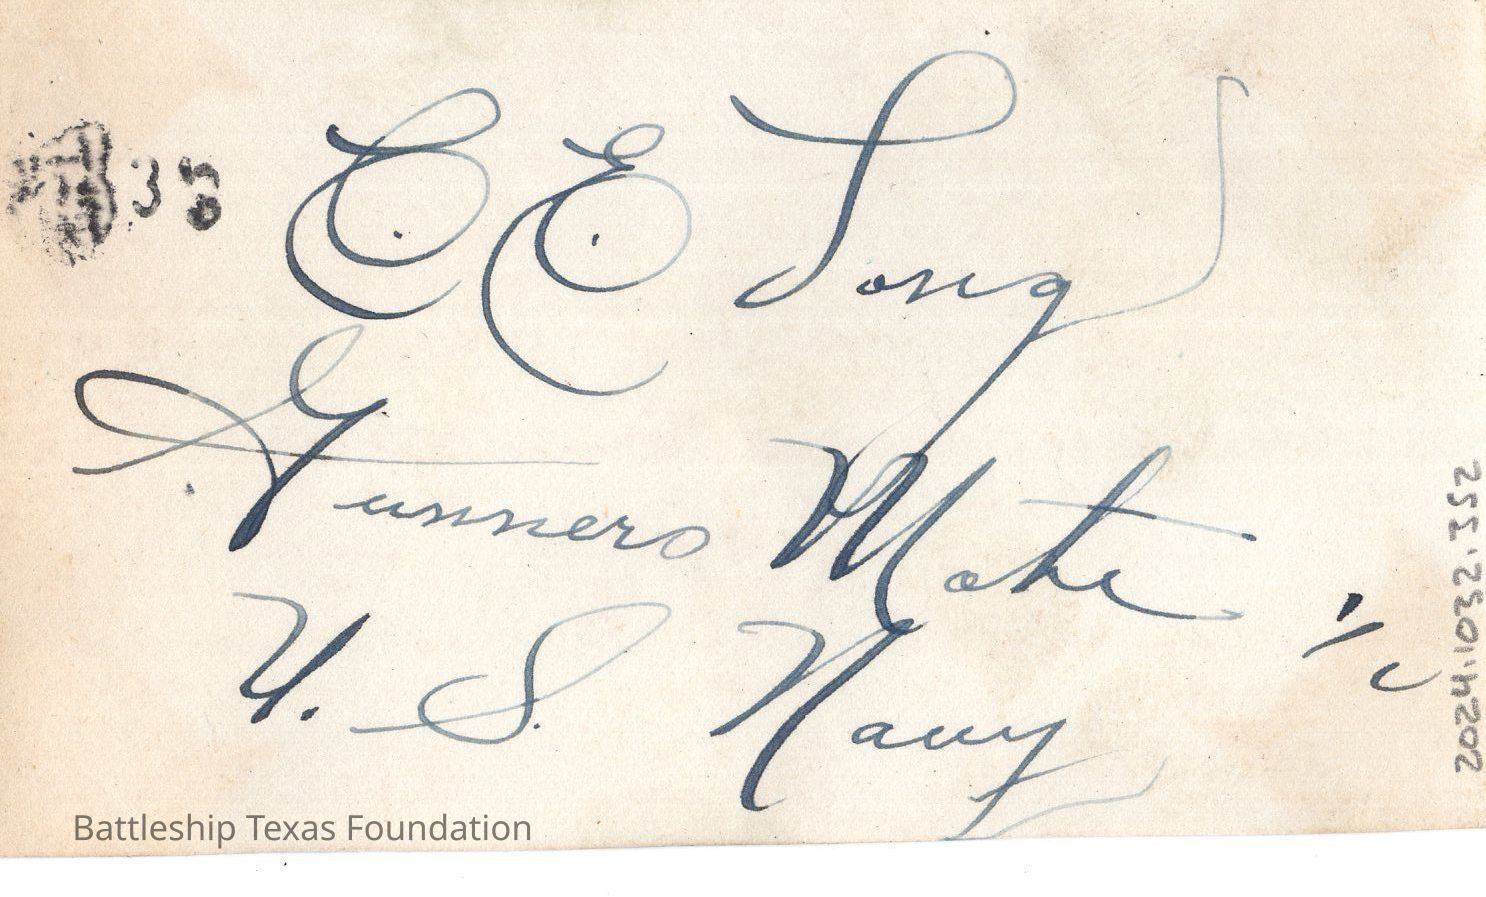 C. E. Long
Gunners Mate 1/c
U. S. Navy
38
2024.1032.352
Battleship Texas Foundation